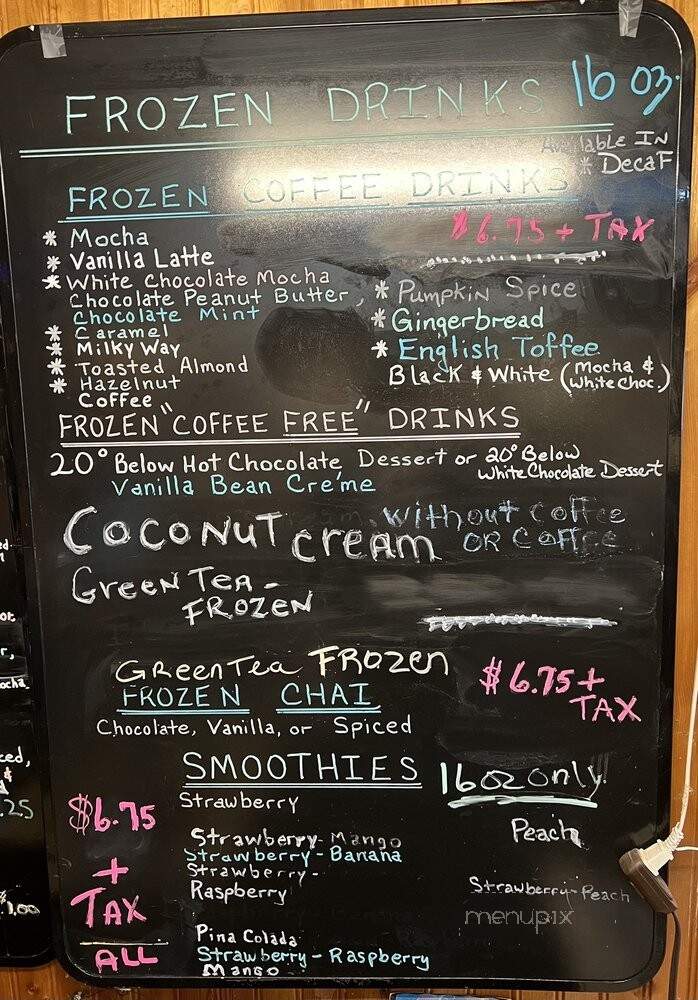 FROZEN DRINKS 16 oz.
Available IN
* Decaf
FROZEN COFFEE DRINKS
$6.75 + TAX
* Mocha
* Vanilla Latte
* White Chocolate Mocha
Chocolate Peanut Butter,
Chocolate Mint
* Caramel
* Milky Way
* Toasted Almond
* Hazelnut
Coffee
* Pumpkin Spice
* Gingerbread
* English Toffee
Black & White (Mocha & White Choc.)
FROZEN "COFFEE FREE" DRINKS
20° Below Hot Chocolate Dessert or 20° Below
White Chocolate Dessert
Vanilla Bean Cre'me
COCONUT CREAM without coffee
OR Coffee
Green Tea -
FROZEN
Green Tea FROZEN
$6.75 +
TAX
FROZEN CHAI
Chocolate, Vanilla, or Spiced
SMOOTHIES 16oz only
$6.75
+
TAX
ALL
Strawberry
Strawberry-Mango
Strawberry-Banana
Strawberry-
Raspberry
Pina Colada
Strawberry-Raspberry
Mango
Peach
Strawberry-Peach
menupix
or
r,
ocha.
ced,
&
.25
$1.00